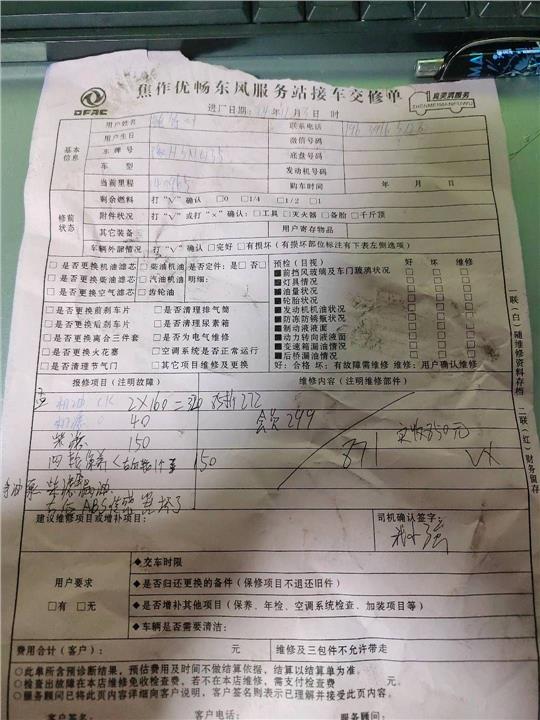 焦作优畅东风服务站接车交修单
DFAC
真美满服务
ZHENMEIMANFUWU
进厂日期: 年 月 日 时
基本信息
用户姓名 联系电话
用户生日 微信号码
车牌号 底盘号码
车型 发动机号码
当前里程 购车时间 年 月 日
修前状态
剩余燃料 打"V"确认 □0 □1/4 □1/2 □1
附件状况 打"V"或打"×"确认: □工具 □灭火器 □备胎 □千斤顶
其它装备 用户寄存物品
车辆外部情况 打"V"确认 □完好 □有损坏(有损坏部位标注有下表左侧选项)
□是否更换机油滤芯 □柴油机油 □是否定件: 是□ 否□
□是否更换柴油滤芯 □汽油机油 明细:
□是否更换空气滤芯 □齿轮油
□是否更换前刹车片 □是否清理排气筒
□是否更换后刹车片 □是否清理尿素箱
□是否更换离合三件套 □是否为电气维修
□是否更换火花塞 □空调系统是否正常运行
□是否清理节气门 □其它项目维修及更换
预检(目视) 好 坏 维修
■前挡风玻璃及车门玻璃状况 □ □ □
■灯具情况 □ □ □
■油量状况 □ □ □
■轮胎状况 □ □ □
■发动机机油状况 □ □ □
■防冻防锈瓶状况 □ □ □
■制动液液面 □ □ □
■动力转向液液面 □ □ □
■变速箱漏油情况 □ □ □
■后桥漏油情况 □ □ □
好: 合格 坏: 有故障需维修 维修: 用户确认维修
报修项目(注明故障) 维修内容(注明维修部件)
2×160=320 85折272
40 会员299
柴滤 150 实收850元
四轮保养 150 871
建议维修项目或增补项目:
司机确认签字:
用户要求
□有 □无
◆交车时限
◆是否归还更换的备件(保修项目不退还旧件)
◆是否增补其他项目(保养、年检、空调系统检查、加装项目等)
◆车辆是否需要清洁:
费用合计(客户): 元 维修及三包件不允许带走
○此单所含预诊断结果,预估费用及时间不做结算依据,结算以结算单为准。
○检查出故障在本店维修免收检查费,若不在本店维修,需支付检查费 元。
○服务顾问已将此页内容详细向客户说明,客户签名则表示已理解并接受此页内容。
客户签名: 客户电话: 服务顾问:
一联(白)随维修资料存档
二联(红)财务留存